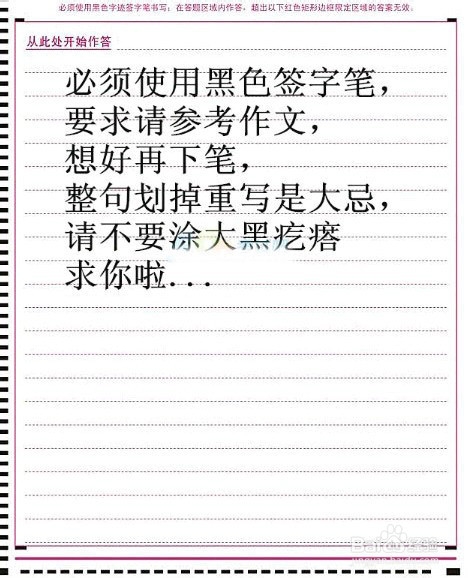 必须使用黑色字迹签字笔书写;在答题区域内作答,超出以下红色矩形边框限定区域的答案无效。
从此处开始作答
必须使用黑色签字笔,
要求请参考作文,
想好再下笔,
整句划掉重写是大忌,
请不要涂大黑疙瘩
求你啦...
Bai 经验